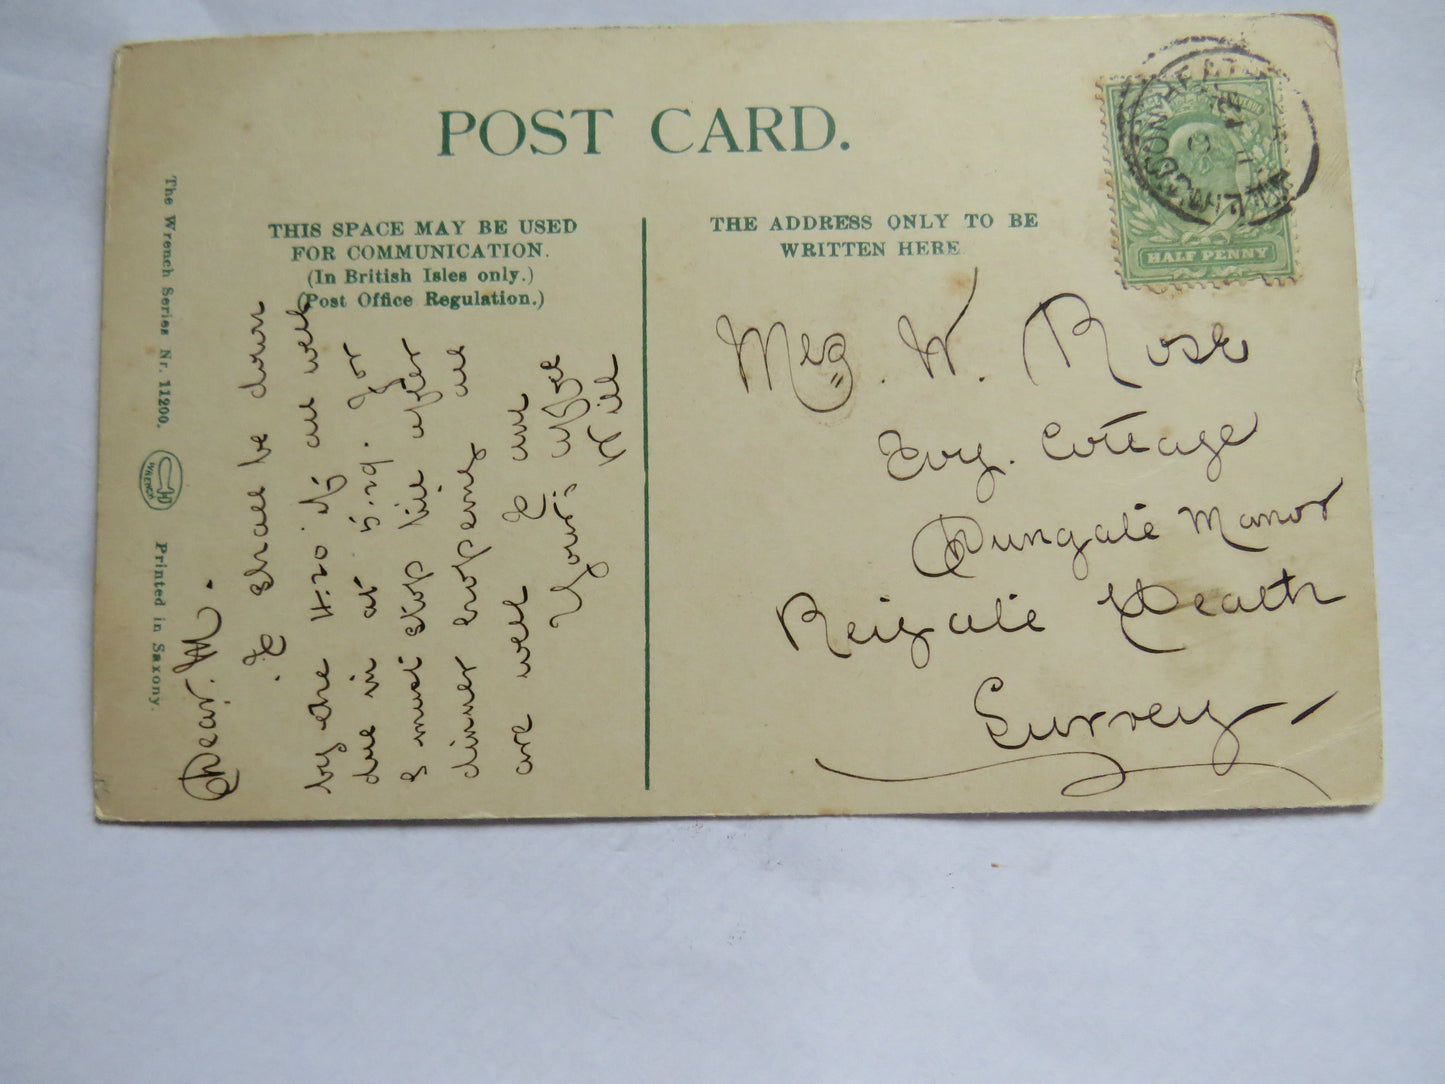 POST CARD.
THIS SPACE MAY BE USED
FOR COMMUNICATION.
(In British Isles only.)
(Post Office Regulation.)
THE ADDRESS ONLY TO BE
WRITTEN HERE
HALF PENNY
The Wrench Series Nr. 11200.
WRENCH
Printed in Saxony.
Dear. M.
I shall be down
by the 4.20 if all well
due in at 5.29. for
I must stop till after
dinner hopeing all
are well I am
Your's
Will
W. Rose
Ivy. Cottage
Dungate Manor
Reigate Heath
Surrey